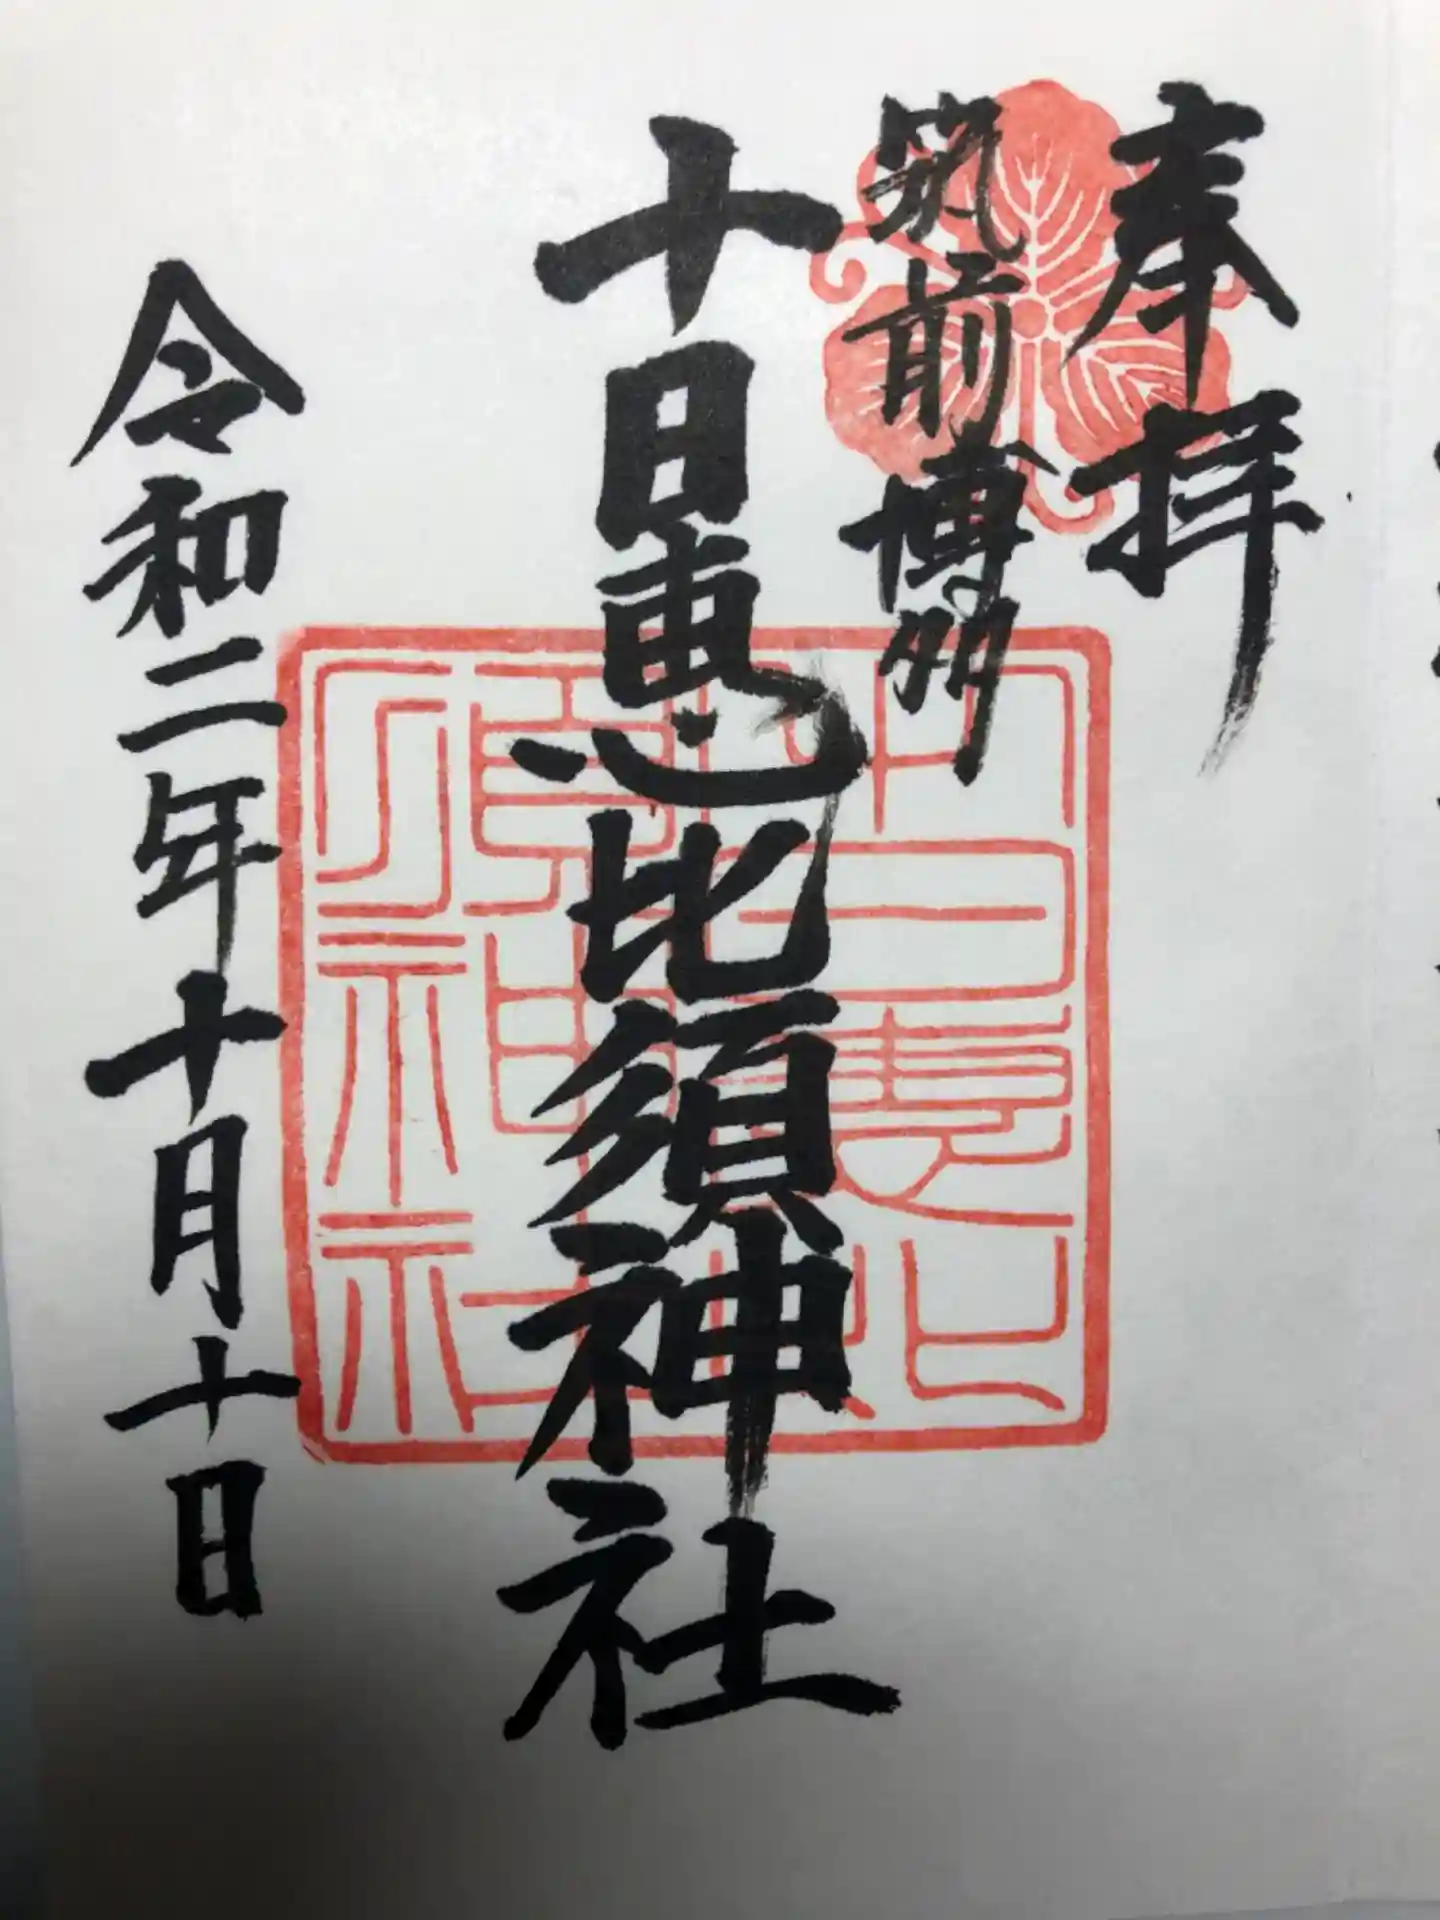 奉拝
筑前博多
十日恵比須神社
十日恵比須神社
令和二年十月十日